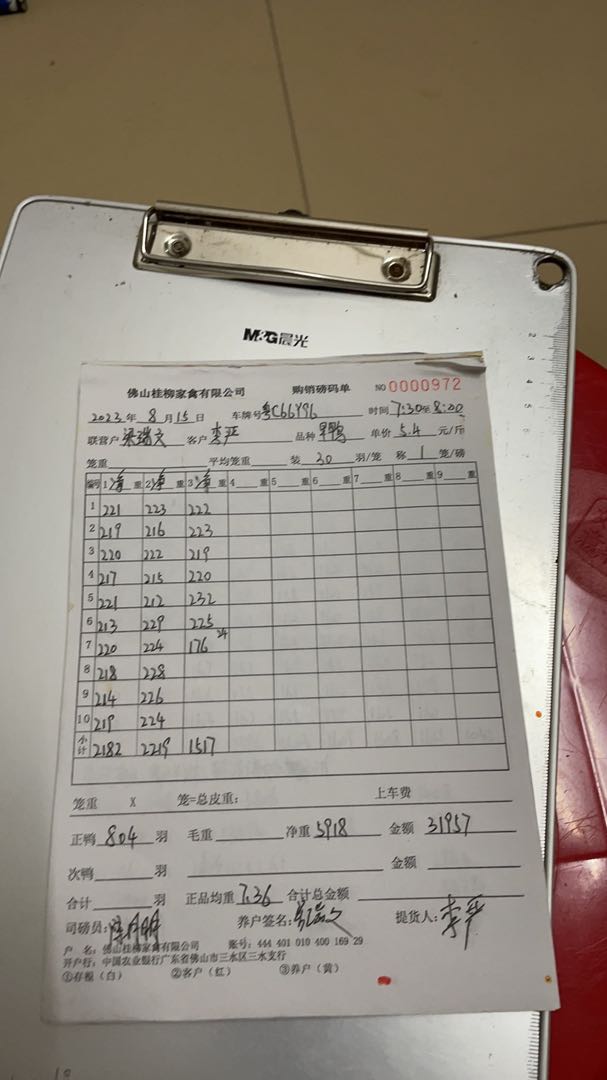 M&G晨光
佛山桂柳家禽有限公司 购销磅码单 NO 0000972
2023年8月15日 车牌号粤C66Y96 时间7:30至8:20
联营户 梁瑞文 客户 李严 品种 旱鸭 单价 5.4 元/斤
笼重 平均笼重 装 30 羽/笼 称 1 笼/磅
编号 1净重 2净重 3净重 4重 5重 6重 7重 8重 9重
1 221 223 222
2 219 216 223
3 220 222 219
4 217 215 220
5 221 212 232
6 213 229 225
7 220 224 176 24
8 218 228
9 214 226
10 219 224
小计 2182 2219 1517
笼重 X 笼=总皮重: 上车费
正鸭 804 羽 毛重 净重 5918 金额 31957
次鸭 羽 金额
合计 羽 正品均重 7.36 合计总金额
司磅员: 养户签名: 提货人: 李严
户 名: 佛山桂柳家禽有限公司 账号: 444 401 010 400 169 29
开户行: 中国农业银行广东省佛山市三水区三水支行
①存根（白） ②客户（红） ③养户（黄）